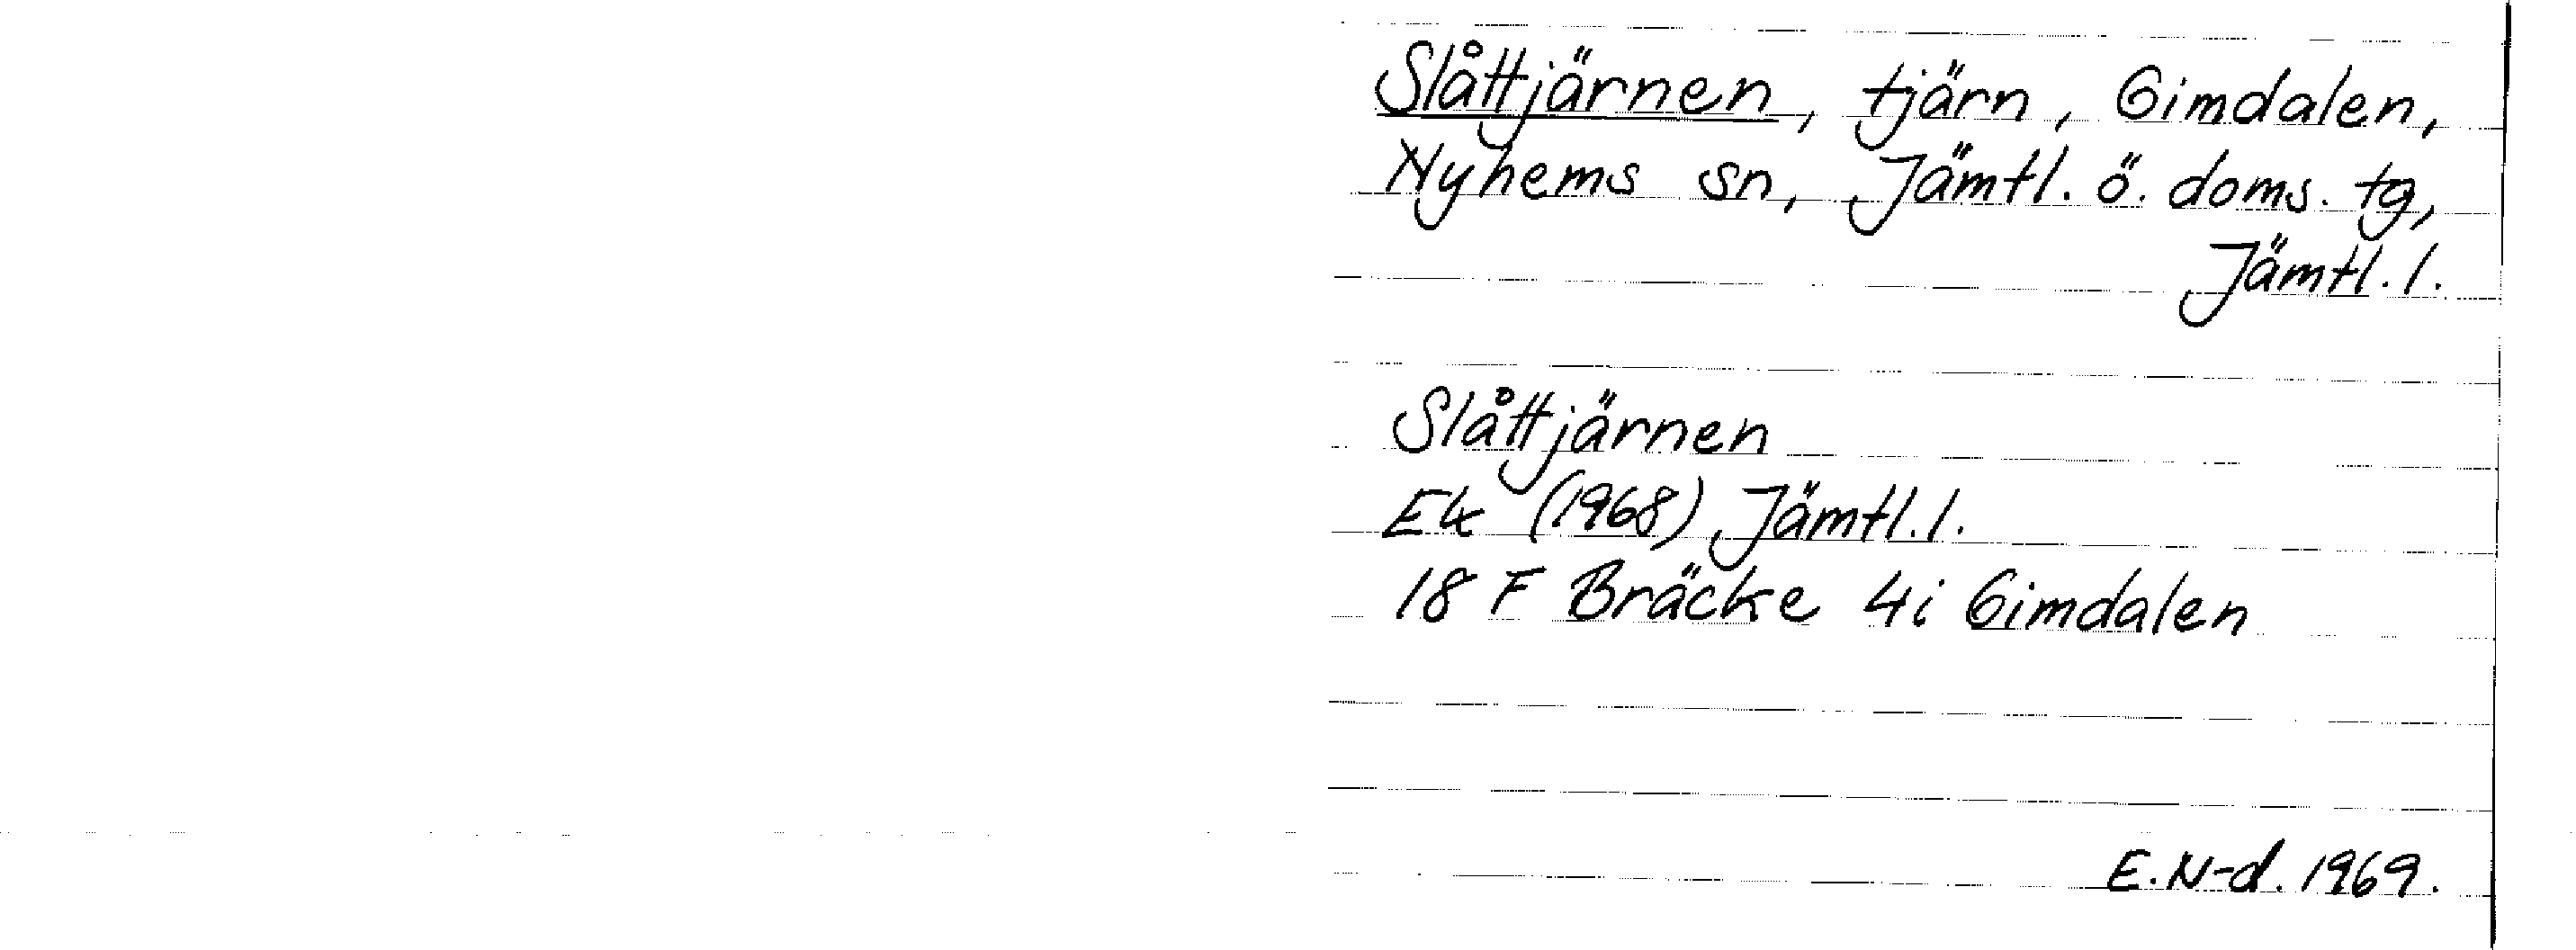 Slåttjärnen, tjärn, Gimdalen,
Nyhems sn, Jämtl. ö. doms. tg,
Jämtl. l.
Slåttjärnen
Ek (1968) Jämtl. l.
18 F Bräcke 4i Gimdalen
E. N-d. 1969.